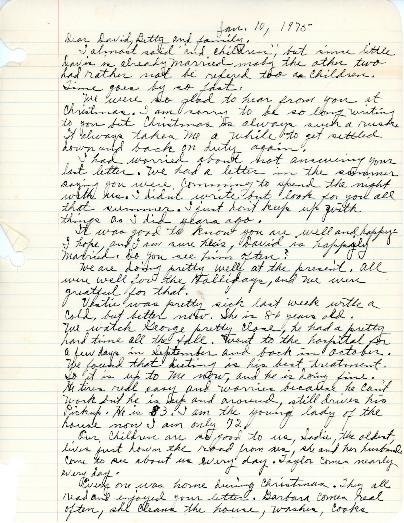 Jan. 10, 1975
Dear David, Betty and family.
I almost said "and, children", but since little
Davis is already married, maby the other two
had rather not be refered too as children.
Time goes by so fast.
We were so glad to hear from you at
Christmas. I am sorry to be so long writing
to you but Christmas is always such a rush
It always takes me a while to get settled
down and back on duty again.
I had worried about not answering your
last letter. We had a letter in the summer
saying you were comming to spend the night
with us. I didnt write but look for you all
that summer. I just dont keep up with
things as I did years ago.
It was good to know you are well and happy
I hope, and I am sure he is, David is happly
married. Do you see him often?
We are doing pretty well at the present, all
were well for the Hallidays, and we were
greatful for that.
was pretty sick last week with a
cold, but better now. She is 86 years old.
We watch George pretty close, he had a pretty
hard time all the fall. Went to the hospital for
a few days in September and back in October.
We found that dieting is his best treatment.
So it is up to me now, and he is doing fine.
He tires real easy and worries because he cant
work but he is up and around, still drives his
Pickup. He is 83. I am the young lady of the
house now I am only 72.
Our children are so good to us, Sadie, the oldest,
lives just down the road from us, she and her husband
come to see about us every day. Taylor comes nearly
every day.
Every one was home during Christmas. They all
read and enjoyed your letter. Barbara comes real
often, she cleans the house, washes, cooks